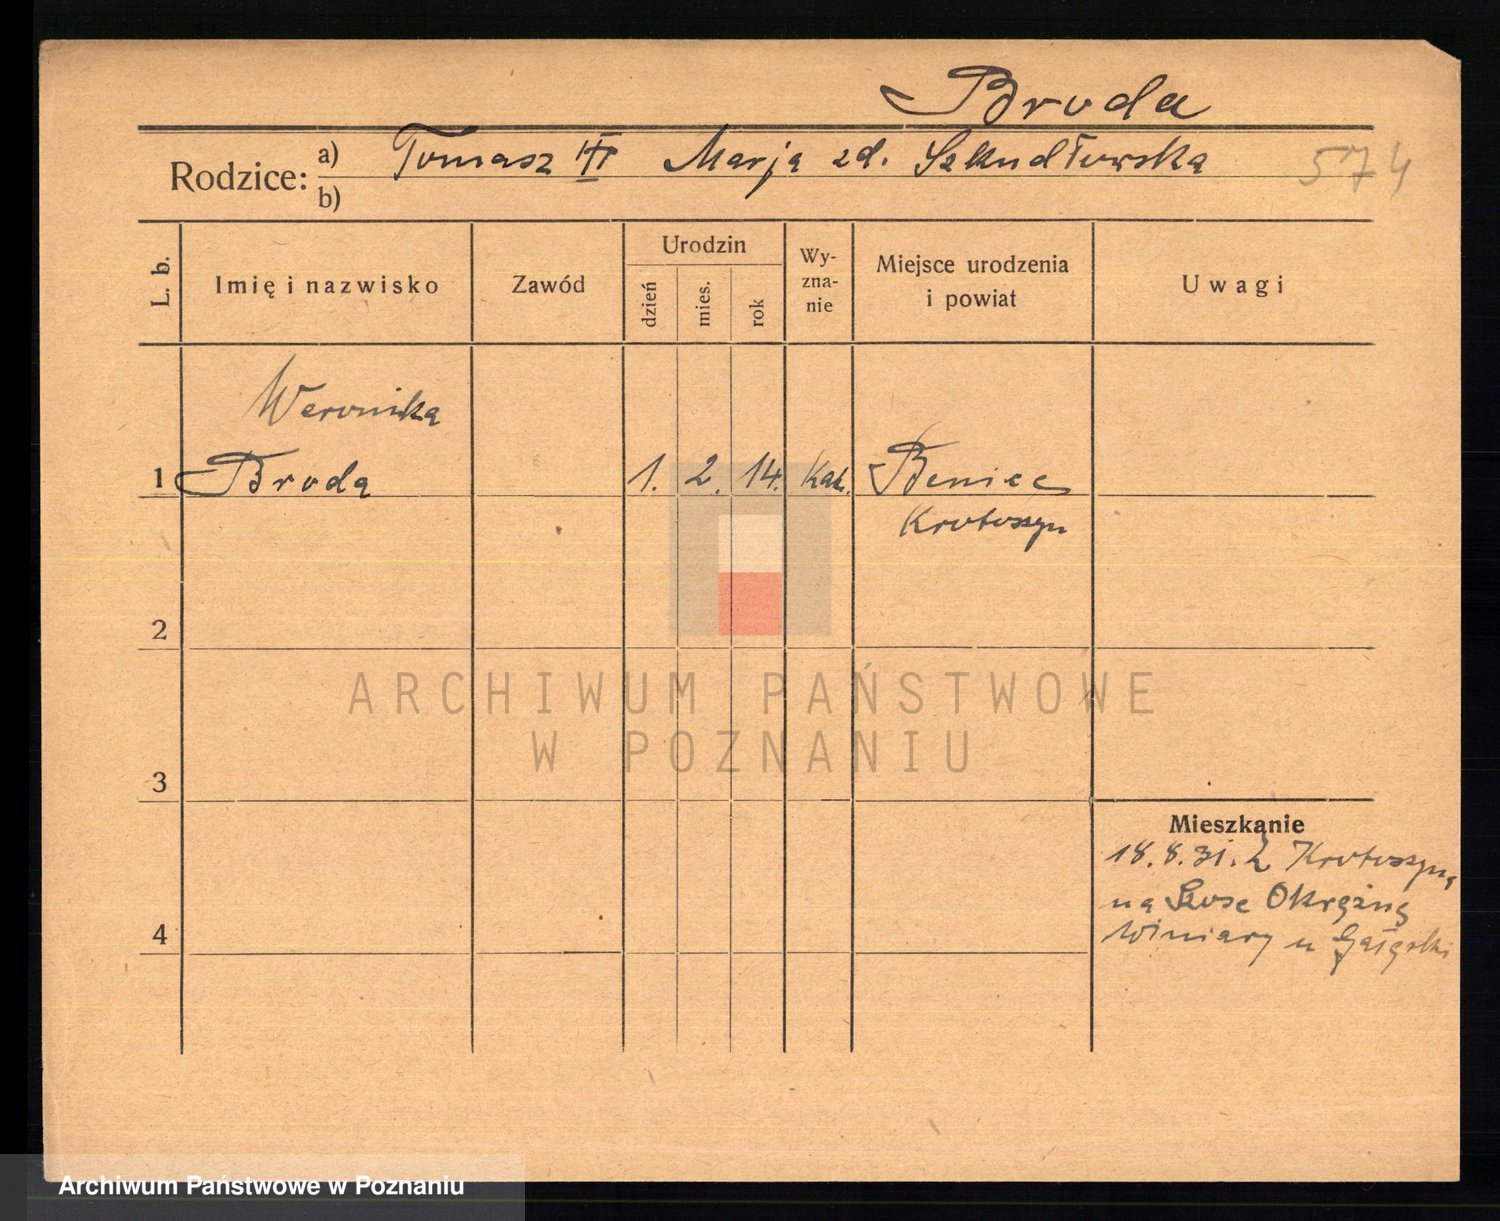 Broda
Rodzice: a) Tomasz III Marja zd. Szkudłowska 574
b)
L. b. Imię i nazwisko Zawód Urodzin dzień mies. rok Wy-zna-nie Miejsce urodzenia i powiat Uwagi
Weronika
1 Broda 1. 2. 14. kat. Benice
Krotoszyn
2
ARCHIWUM PAŃSTWOWE
W POZNANIU
3
Mieszkanie
18.8.31. Z Krotoszyna
na Szose Okrężną
4 Winiary u
Archiwum Państwowe w Poznaniu